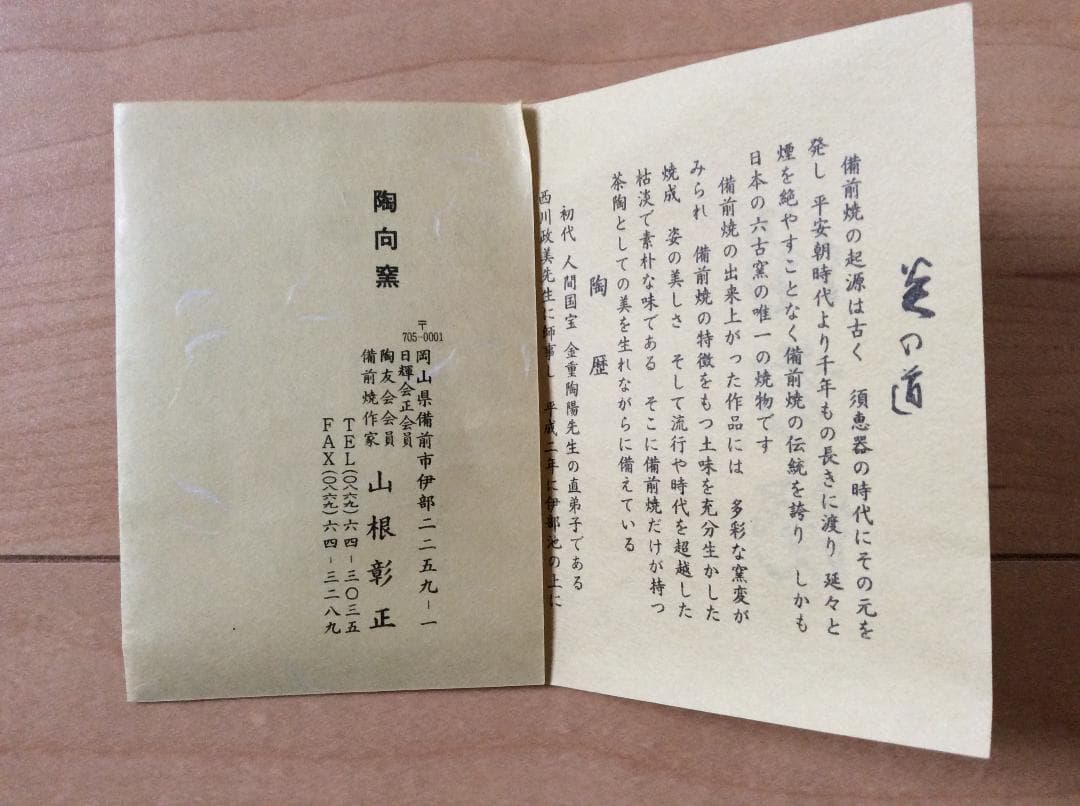 炎の道
備前焼の起源は古く　須恵器の時代にその元を
発し　平安朝時代より千年もの長きに渡り　延々と
煙を絶やすことなく備前焼の伝統を誇り　しかも
日本の六古窯の唯一の焼物です
備前焼の出来上がった作品には　多彩な窯変が
みられ　備前焼の特徴をもつ土味を充分生かした
焼成　姿の美しさ　そして流行や時代を超越した
枯淡で素朴な味である　そこに備前焼だけが持つ
茶陶としての美を生れながらに備えている
陶歴
初代　人間国宝　金重陶陽先生の直弟子である
西川政美先生に師事し　平成二年に伊部池の上に
陶向窯
〒705-0001
岡山県備前市伊部二二五九－一
日輝会正会員
陶友会会員
備前焼作家
山根彰正
TEL(〇八六九)六四－三〇三五
FAX(〇八六九)六四－三二八九